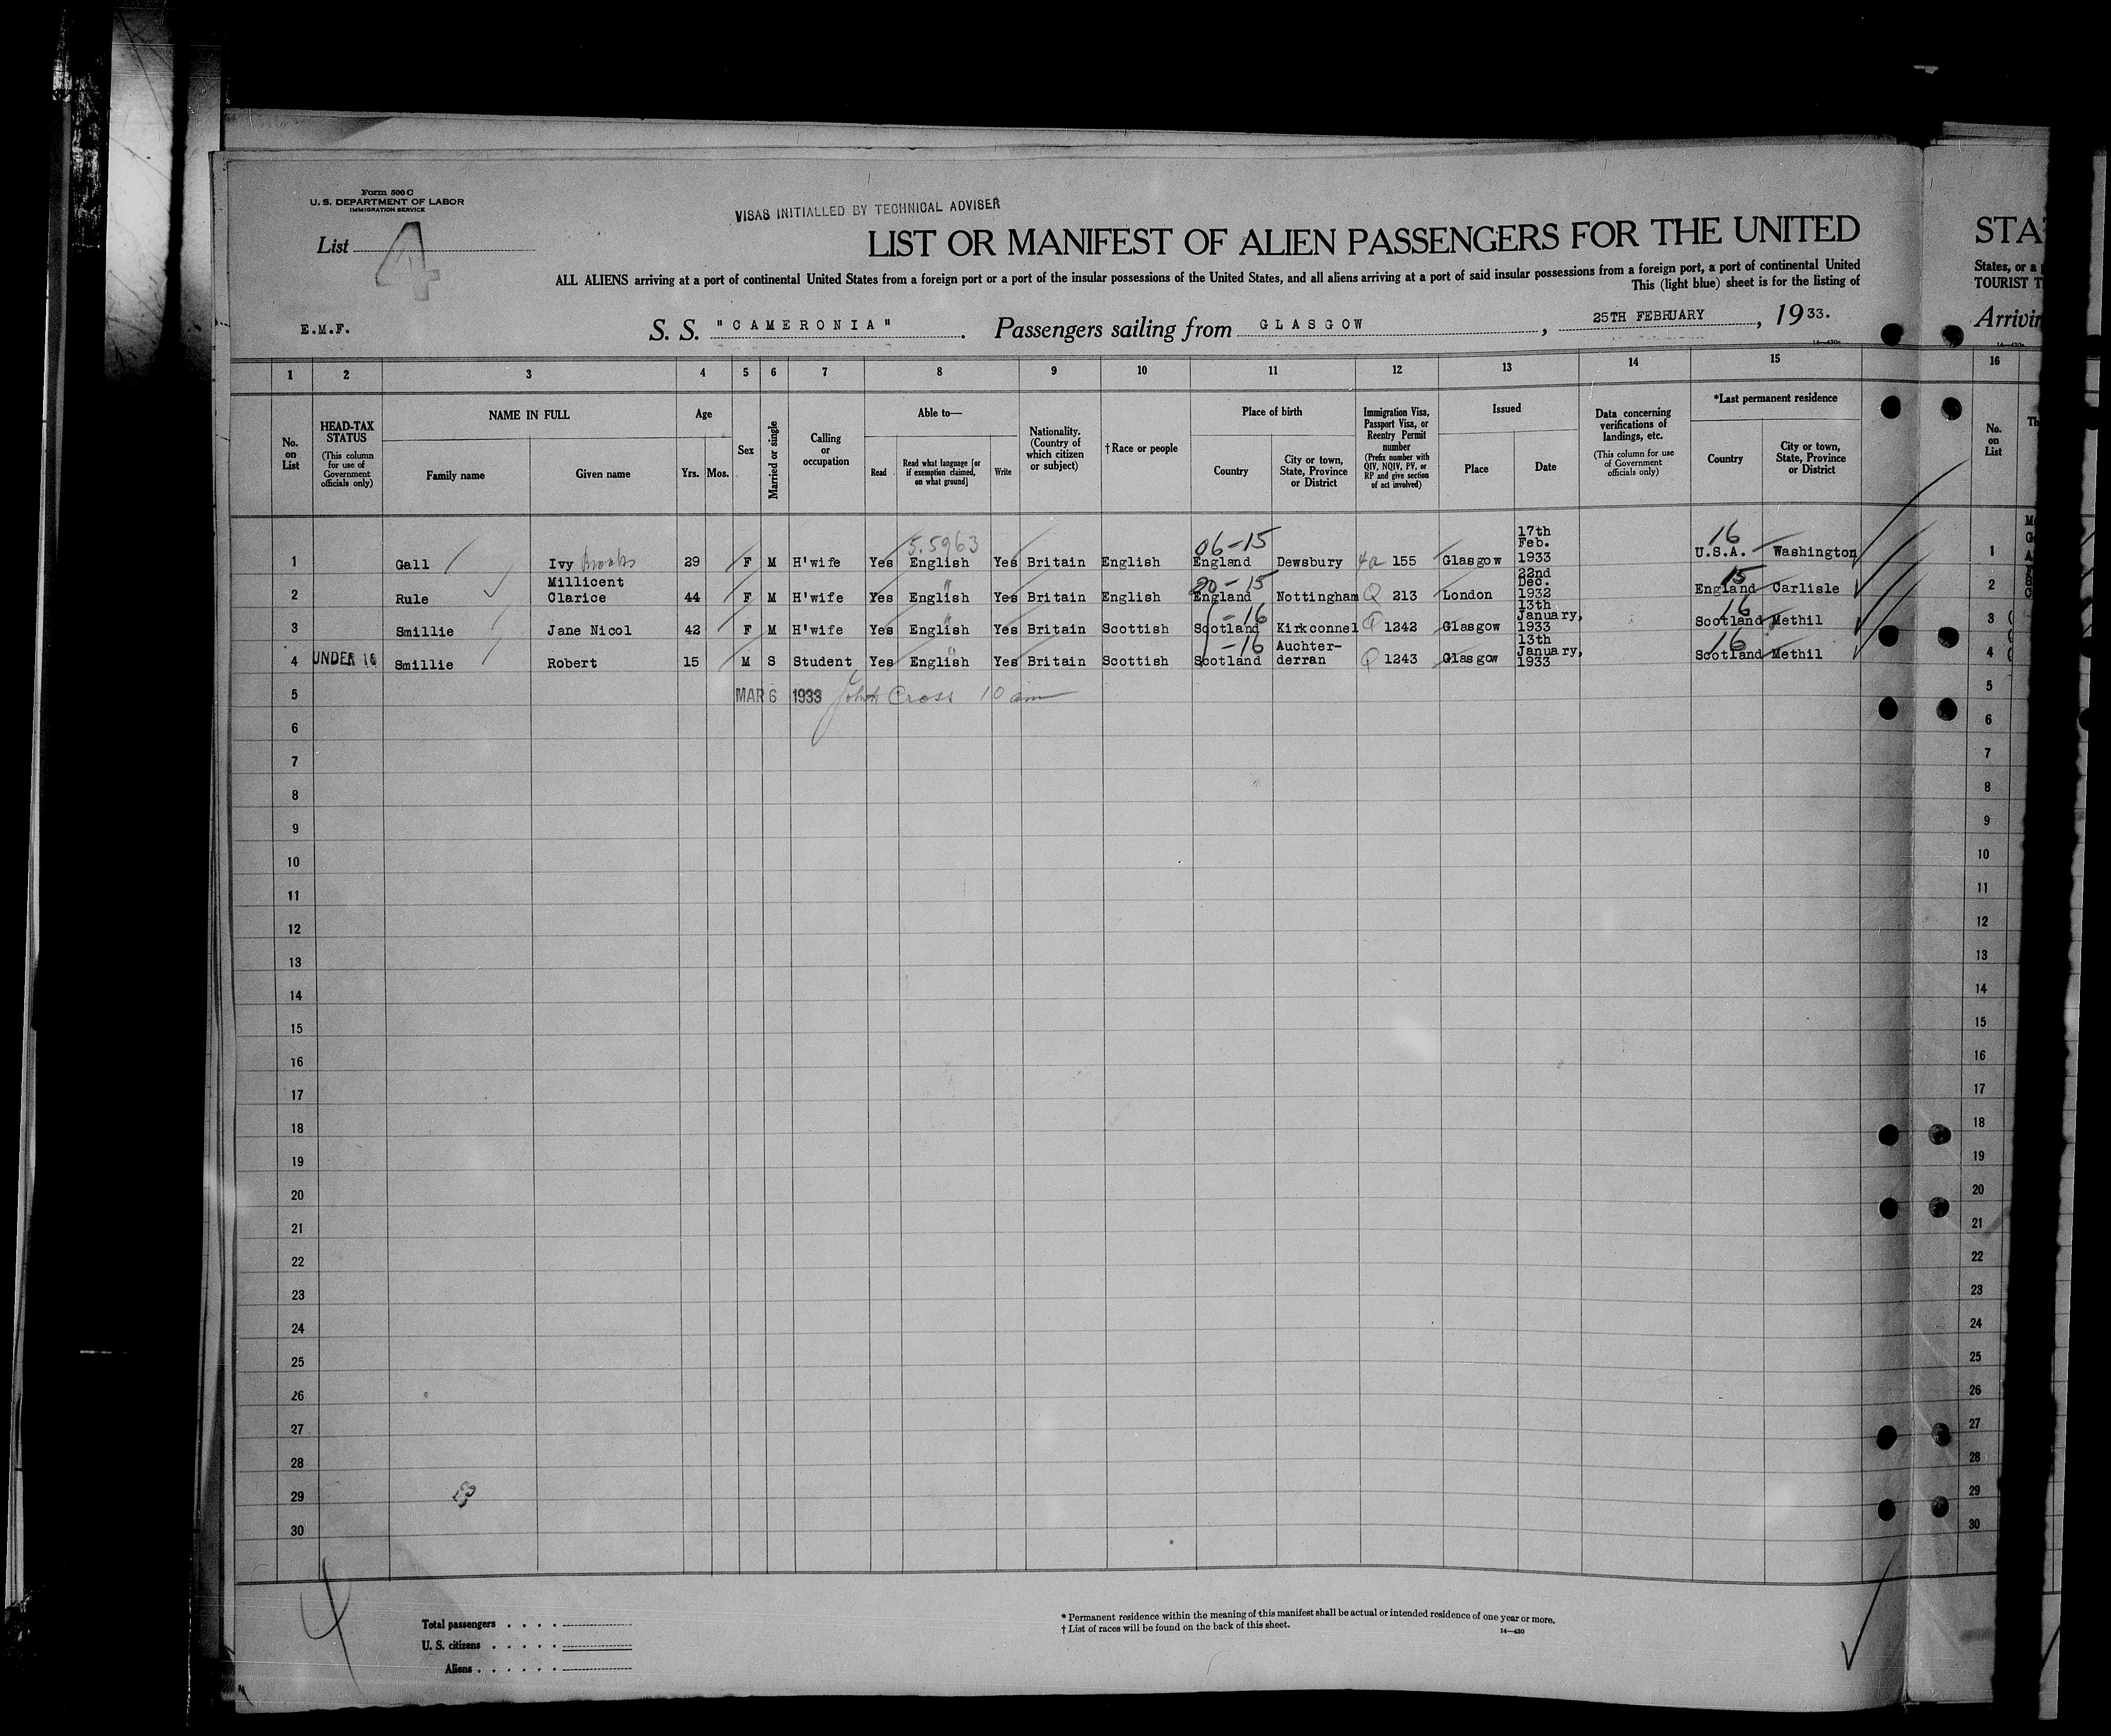 Form 500 C
U. S. DEPARTMENT OF LABOR
IMMIGRATION SERVICE
List 4
VISAS INITIALLED BY TECHNICAL ADVISER
LIST OR MANIFEST OF ALIEN PASSENGERS FOR THE UNITED
ALL ALIENS arriving at a port of continental United States from a foreign port or a port of the insular possessions of the United States, and all aliens arriving at a port of said insular possessions from a foreign port, a port of continental United
This (light blue) sheet is for the listing of
E.M.F.
S. S. "CAMERONIA". Passengers sailing from GLASGOW, 25TH FEBRUARY, 1933.
14—430c
1 2 3 4 5 6 7 8 9 10 11 12 13 14 15
No. on List
HEAD-TAX STATUS (This column for use of Government officials only)
NAME IN FULL
Family name
Given name
Age
Yrs. Mos.
Sex
Married or single
Calling or occupation
Able to—
Read
Read what language [or if exemption claimed, on what ground]
Write
Nationality. (Country of which citizen or subject)
†Race or people
Place of birth
Country
City or town, State, Province or District
Immigration Visa, Passport Visa, or Reentry Permit number (Prefix number with QIV, NQIV, PV, or RP and give section of act involved)
Issued
Place
Date
Data concerning verifications of landings, etc. (This column for use of Government officials only)
*Last permanent residence
Country
City or town, State, Province or District
5.5963 06-15 16
1 Gall Ivy Brooks 29 F M H'wife Yes English Yes Britain English England Dewsbury 4a 155 Glasgow 17th Feb. 1933 U.S.A. Washington
20-15 15
2 Rule Millicent Clarice 44 F M H'wife Yes English " Yes Britain English England Nottingham Q 213 London 22nd Dec. 1932 England Carlisle
-16 16
3 Smillie Jane Nicol 42 F M H'wife Yes English " Yes Britain Scottish Scotland Kirkconnel Q 1242 Glasgow 13th January, 1933 Scotland Methil
-16 16
4 UNDER 16 Smillie Robert 15 M S Student Yes English " Yes Britain Scottish Scotland Auchter-derran Q 1243 Glasgow 13th January, 1933 Scotland Methil
5 MAR 6 1933 John Cross 10 am
6
7
8
9
10
11
12
13
14
15
16
17
18
19
20
21
22
23
24
25
26
27
28
29
30
4
Total passengers
U. S. citizens
Aliens
* Permanent residence within the meaning of this manifest shall be actual or intended residence of one year or more.
† List of races will be found on the back of this sheet.
14—430
STA
States, or a
TOURIST T
Arrivin
16
No. on List
Th
1
2
3
4
5
6
7
8
9
10
11
12
13
14
15
16
17
18
19
20
21
22
23
24
25
26
27
28
29
30